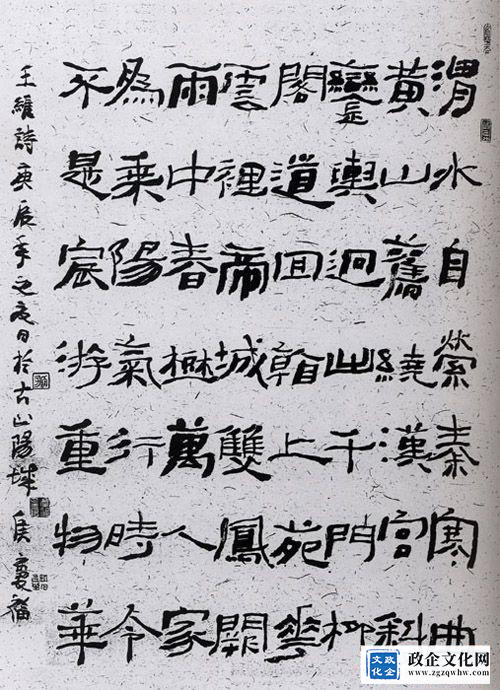 渭水自縈秦塞曲
黄山舊繞漢宫斜
鑾輿迥出千門柳
閣道回看上苑花
雲裡帝城雙鳳闕
雨中春樹萬人家
為乘陽氣行時令
不是宸游重物華
王維詩庚辰年之夏日於古山陽城 侯
政企文化
政企文化网
www.zgzqwhw.com